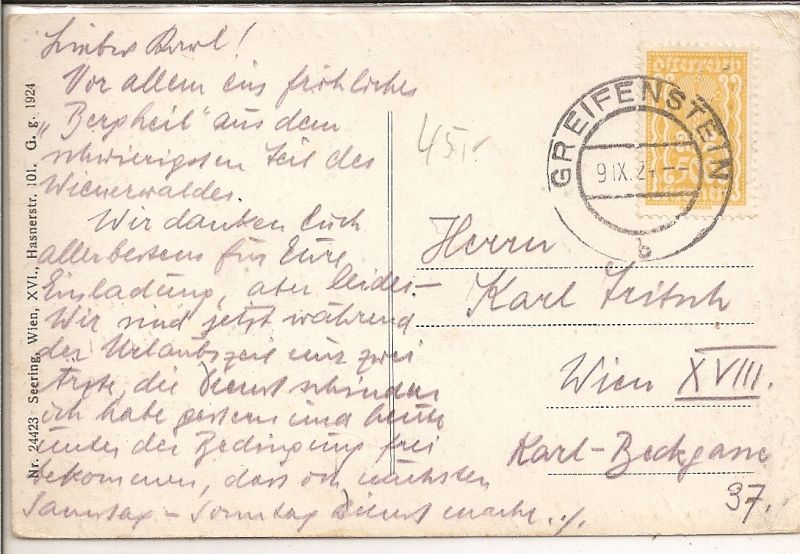 Lieber Karl!
Vor allem ein fröhliches
„Bergheil" aus dem
schwierigsten Teil des
Wienerwaldes.
Wir danken Euch
allerbestens für Eure
Einladung, aber leider –
Wir sind jetzt während
der Urlaubszeit nur zwei
Ärzte, die Dienst schinden
ich habe gestern und heute
unter der Bedingung frei
bekommen, dass ich nächsten
Samstag – Sonntag Dienst mache ./.
Nr. 24423 Seering, Wien, XVI., Hasnerstr. 101. G. g. 1924
45
Österreich
GREIFENSTEIN
9 IX. 2
b
Herrn
Karl Fritsch
Wien XVIII.
Karl-Beckgasse
37.